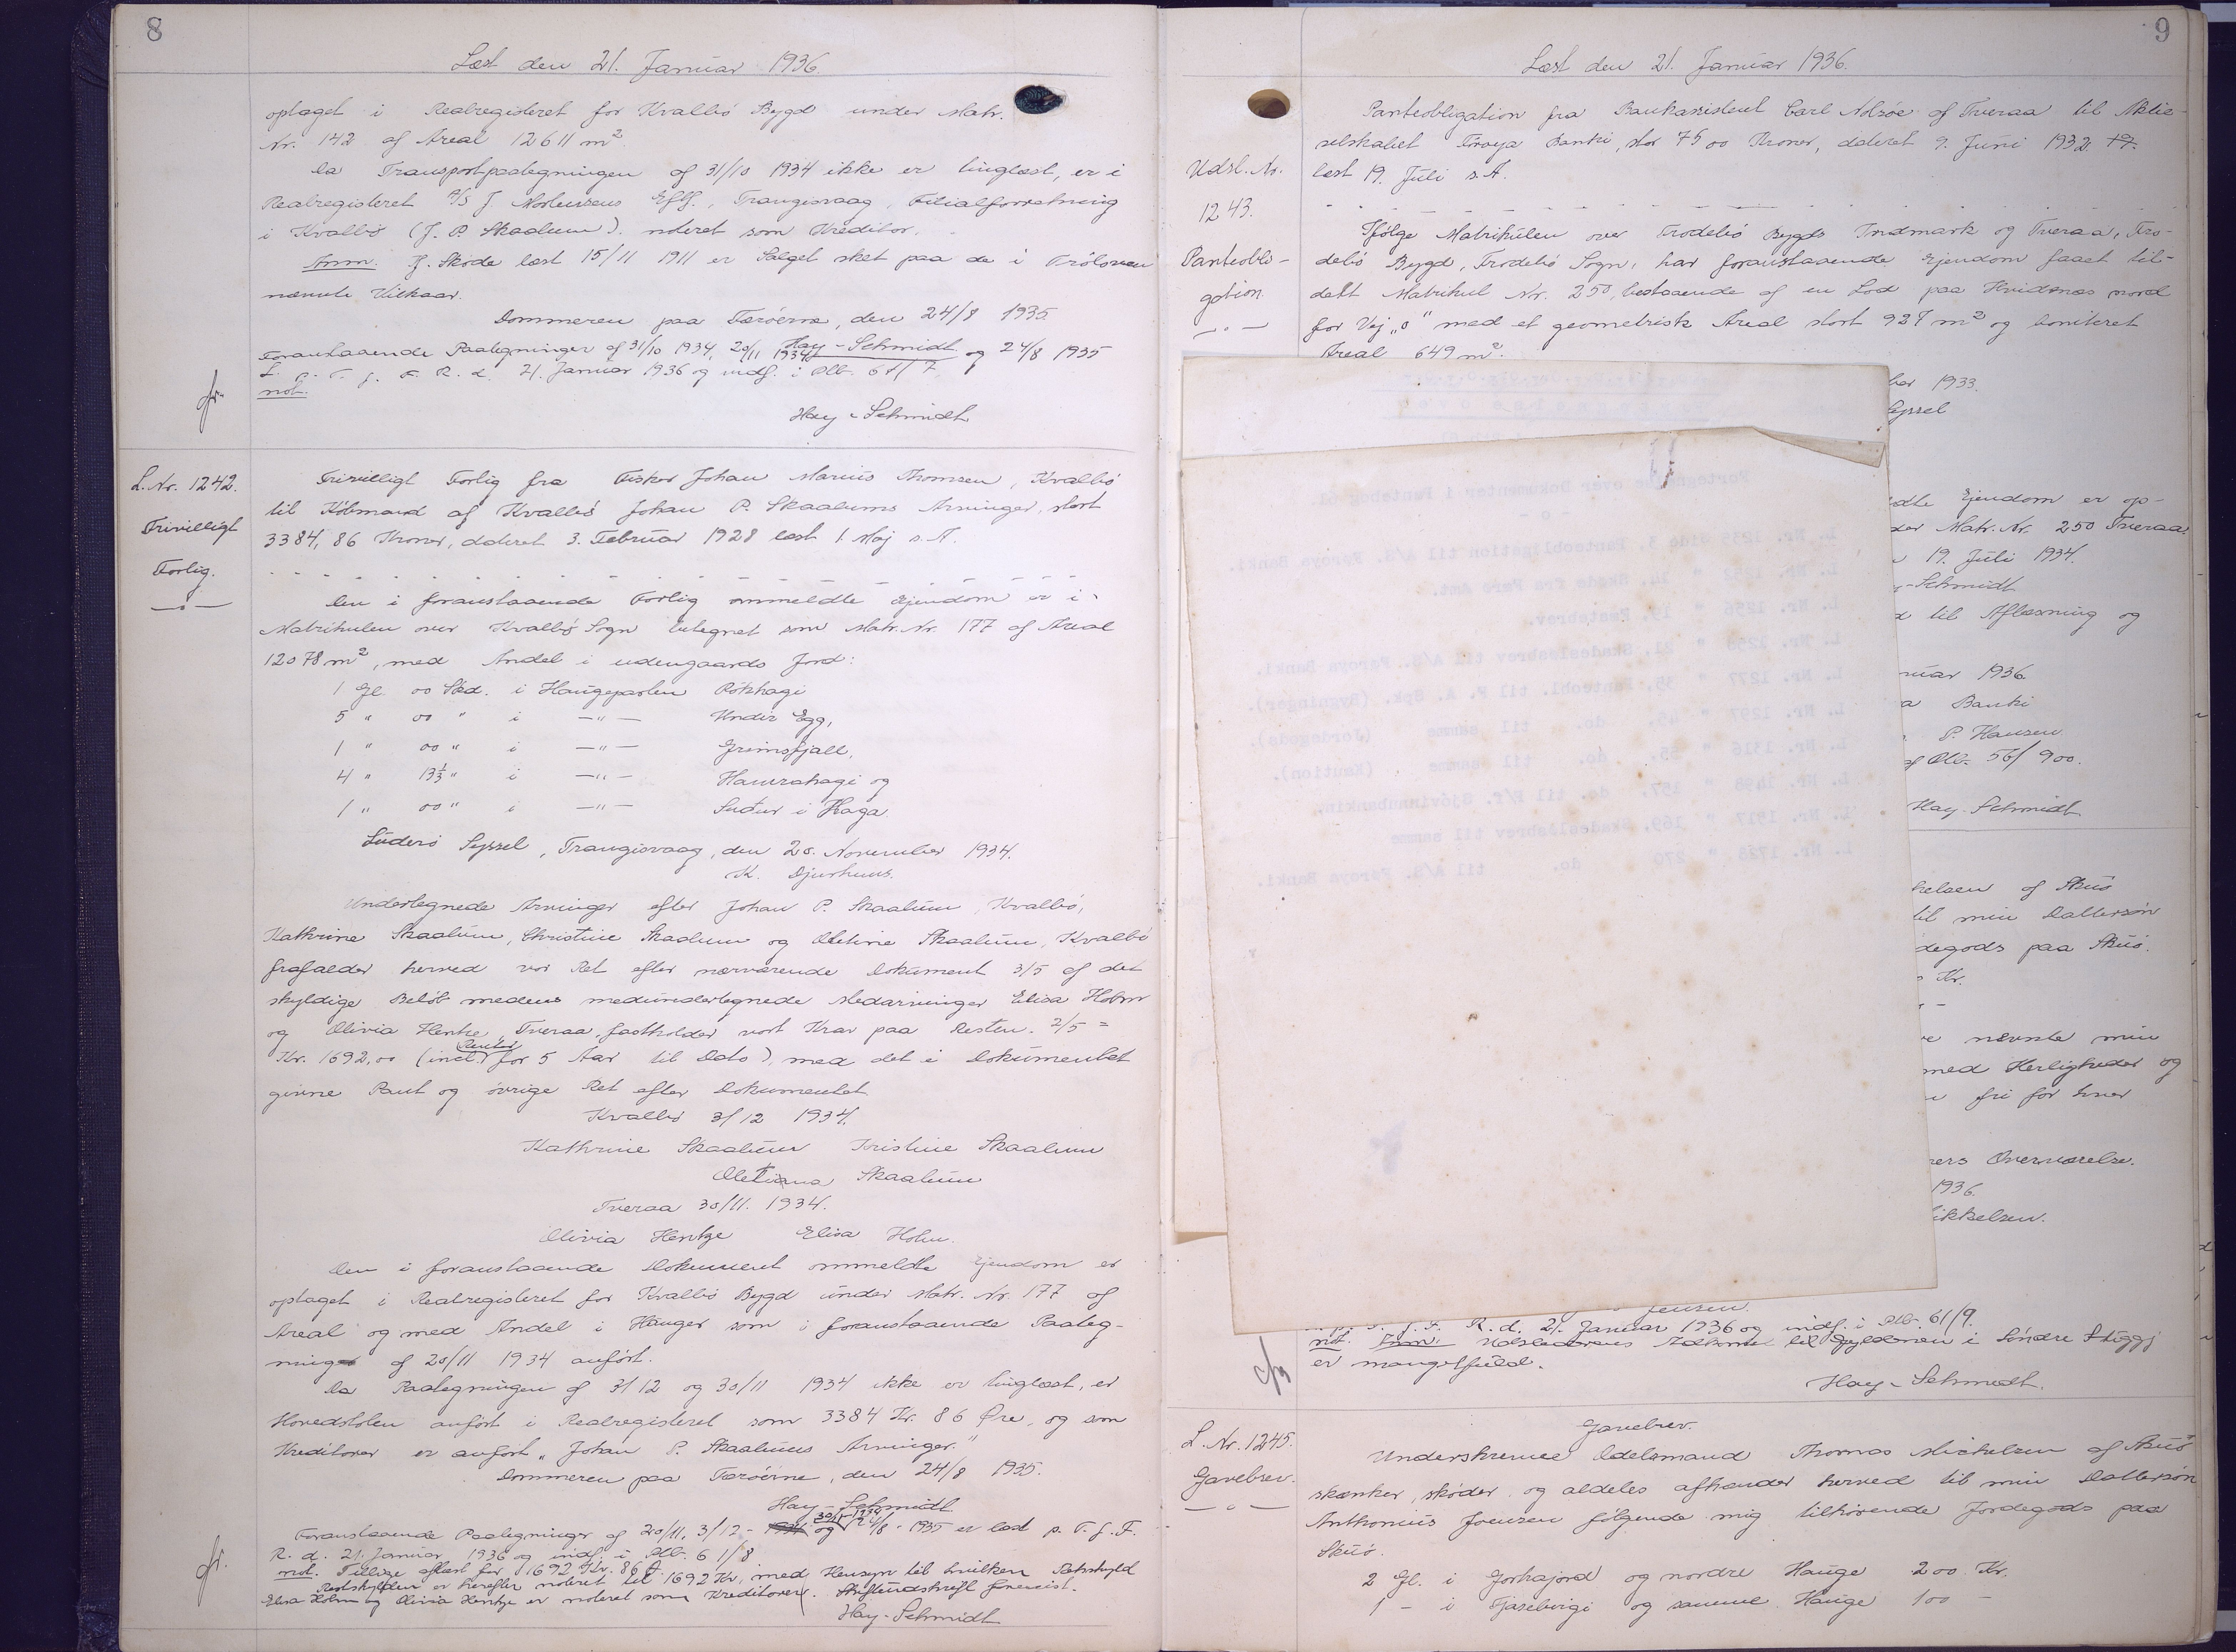 8
Læst den 21. Januar 1936.
optaget i Realregisteret for Kvalbö Bygd under Matr.
Nr. 142 af Areal 12611 m².
Da Transportpaategningen af 31/10 1934 ikke er tinglæst, er i
Realregisteret A/S J. Mortensens Eftf., Trangisvaag, Filialforretning
i Kvalbö (J. P. Skaalum). noteret som Kreditor.
Anm. If. Sköde læst 15/11 1911 er Salget sket paa de i
nævnte Vilkaar.
Dommeren paa Færöerne, den 24/8 1935.
Hay-Schmidt
Foranstaaende Paategninger af 31/10 1934, 20/11 1934 og 24/8 1935
L. p. T. f. F. R. d. 21. Januar 1936 og indf. i Plb. 61/7.
not.
Hay-Schmidt
L. Nr. 1242.
Frivilligt
Forlig.
Frivilligt Forlig fra Fisker Johan Marius Thomsen, Kvalbö
til Köbmand af Kvalbö Johan P. Skaalums Arvinger, stort
3384,86 Kroner, dateret 3. Februar 1928 læst 1. Maj s. A.
Den i foranstaaende Forlig ommeldte Ejendom er i
Matrikulen over Kvalbö Sogn betegnet som Matr. Nr. 177 af Areal
12078 m², med Andel i udengaards Jord:
1 Gl. 00 Skd. i Haugeparten Rökhagi
5 " 00 " i —"— Undir Egg,
1 " 00 " i —"— Grimsfjall,
4 " 13⅓ " i —"— Hamrahagi og
1 " 00 " i —"— Sudur i Haga.
Süderö Syssel, Trangisvaag, den 20. November 1934.
K. Djurhuus.
Undertegnede Arvinger efter Johan P. Skaalum, Kvalbö,
Kathrine Skaalum, Christine Skaalum og Oletine Skaalum, Kvalbö
frafalder herved vor Ret efter nærværende Dokument 3/5 af det
skyldige Belöb medens medundertegnede Medarvinger Elisa Holm
og Olivia Hentze, Tveraa fastholder vort Krav paa Resten. 2/5 =
Kr. 1692,00 (incl. Renter for 5 Aar til Dato), med det i Dokumentet
givne Pant og övrige Ret efter Dokumentet.
Kvalbö 3/12 1934.
Kathrine Skaalum Kristine Skaalum
Oletiana Skaalum
Tveraa 30/11. 1934.
Olivia Hentze Elisa Holm.
Den i foranstaaende Dokument ommeldte Ejendom er
optaget i Realregisteret for Kvalbö Bygd under Matr. Nr. 177 af
Areal og med Andel i Hauger som i foranstaaende Paateg-
ning af 20/11 1934 anfört.
Da Paategningen af 3/12 og 30/11 1934 ikke er tinglæst, er
Hovedstolen anfört i Realregisteret som 3384 Kr. 86 Øre, og som
Kreditorer er anfört "Johan P. Skaalums Arvinger."
Dommeren paa Færöerne, den 24/8 1935.
Hay-Schmidt
Foranstaaende Paategninger af 20/11, 3/12 - 30/11 - 1934 og 24/8 - 1935 er læst p. T. f. F.
R. d. 21. Januar 1936 og indf. i Plb. 61/8
not. Tillige aflæst for 1692 Kr. 86 Ø.
Restskylden er herefter noteret til 1692 Kr, med Hensyn til hvilken Restskyld
Elisa Holm og Olivia Hentze er noteret som Kreditorer.
Hay-Schmidt
9
Læst den 21. Januar 1936.
Udsl. Nr.
1243.
Panteobli-
gation.
Panteobligation fra Bankassistent Carl Nolsöe af Tveraa til Aktie-
selskabet Föroya Banki, stor 7500 Kroner, dateret 9. Juni 1932
læst 19. Juli s. A.
Ifölge Matrikulen over Frodebö Bygds Indmark og Tveraa, Fro-
debö Bygd, Frodebö Sogn, har foranstaaende Ejendom faaet til-
delt Matrikul Nr. 250, bestaaende af en Lod paa Hvidenæs nord
for Vej "o" med et geometrisk Areal stort 927 m² og boniteret
Areal 649 m².
ber 1933.
Syssel
ldte Ejendom er op-
der Matr. Nr. 250 Tveraa.
19. Juli 1934.
Schmidt
til Aflæsning og
nuar 1936.
a Banki
P. Hansen
af Plb. 56/900.
Hay-Schmidt
kelsen af Skuö
til min Dattersön
degods paa Skuö.
Kr.
nævnte min
med Herligheder og
fri for hver
rers Overværelse.
1936.
ikkelsen.
Jensen.
R. d. 21. Januar 1936 og indf. i Plb. 61/9.
not. Anm. Udstederens Adkomst til Gyldenen i Söndre Stuggj
er mangelfuld.
Hay-Schmidt.
L. Nr. 1245.
Gavebrev.
Gavebrev.
Underskrevne Odelsmand Thomas Mickelsen af Skuö
skænker, sköder og aldeles afhænder herved til min Dattersön
Anthonius Joensen fölgende mig tilhörende Jordegods paa
Skuö.
2 Gl. i Jorhajord og nordre Hauge 200 Kr.
1 - i og samme Hauge 100 -